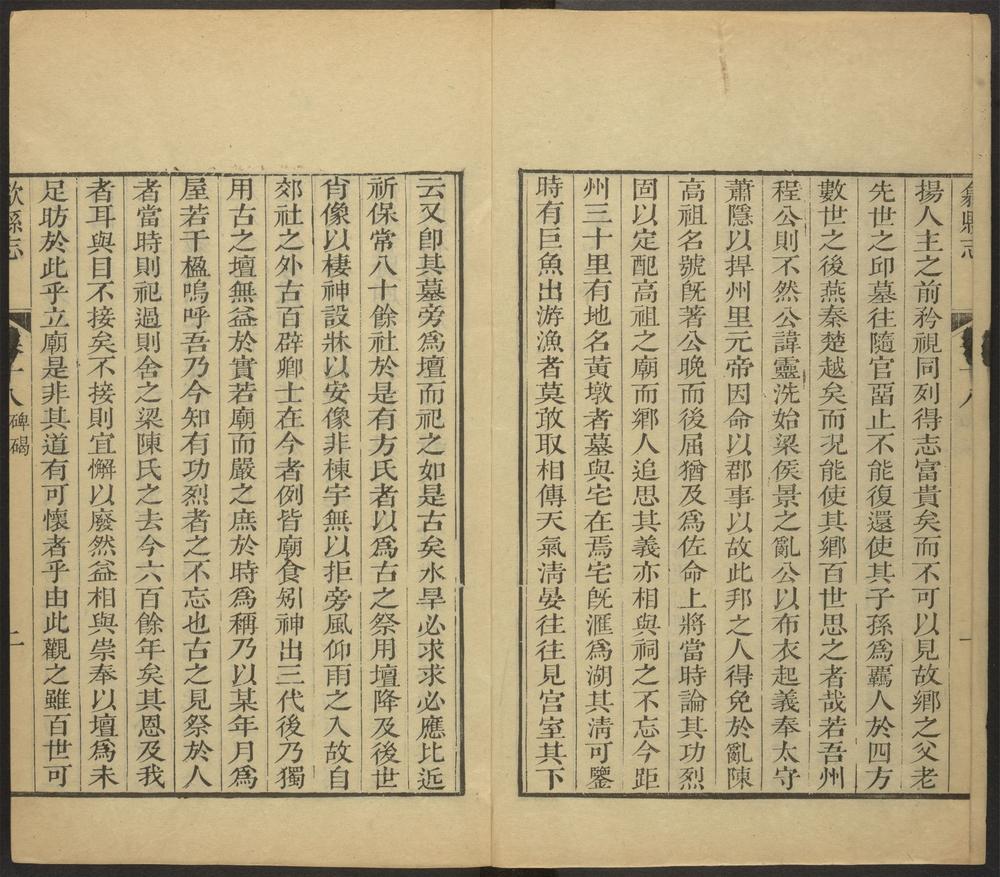 歙縣志
揚人主之前矜視同列得志富貴矣而不可以見故鄉之父老
先世之邱墓往隨官畱止不能復還使其子孫爲羈人於四方
數世之後燕秦楚越矣而况能使其鄉百世思之者哉若吾州
程公則不然公諱靈洗始梁侯景之亂公以布衣起義奉太守
蕭隱以捍州里元帝因命以郡事以故此邦之人得免於亂陳
高祖名號旣著公晚而後屈猶及爲佐命上將當時論其功烈
固以定配高祖之廟而鄉人追思其義亦相與祠之不忘今距
州三十里有地名黃墩者墓與宅在焉宅旣滙爲湖其淸可鑒
時有巨魚出游漁者莫敢取相傳天氣淸晏往往見宫室其下
云又卽其墓旁爲壇而祀之如是古矣水旱必求求必應比近
祈保常八十餘社於是有方氏者以爲古之祭用壇降及後世
肖像以棲神設牀以安像非棟宇無以拒旁風仰雨之入故自
郊社之外古百辟卿士在今者例皆廟食矧神出三代後乃獨
用古之壇無益於實若廟而嚴之庶於時爲稱乃以某年月爲
屋若干楹嗚呼吾乃今知有功烈者之不忘也古之見祭於人
者當時則祀過則舍之梁陳氏之去今六百餘年矣其恩及我
者耳與目不接矣不接則宜懈以廢然益相與崇奉以壇爲未
足昉於此乎立廟是非其道有可懷者乎由此觀之雖百世可
歙縣志 卷十八 碑碣 二